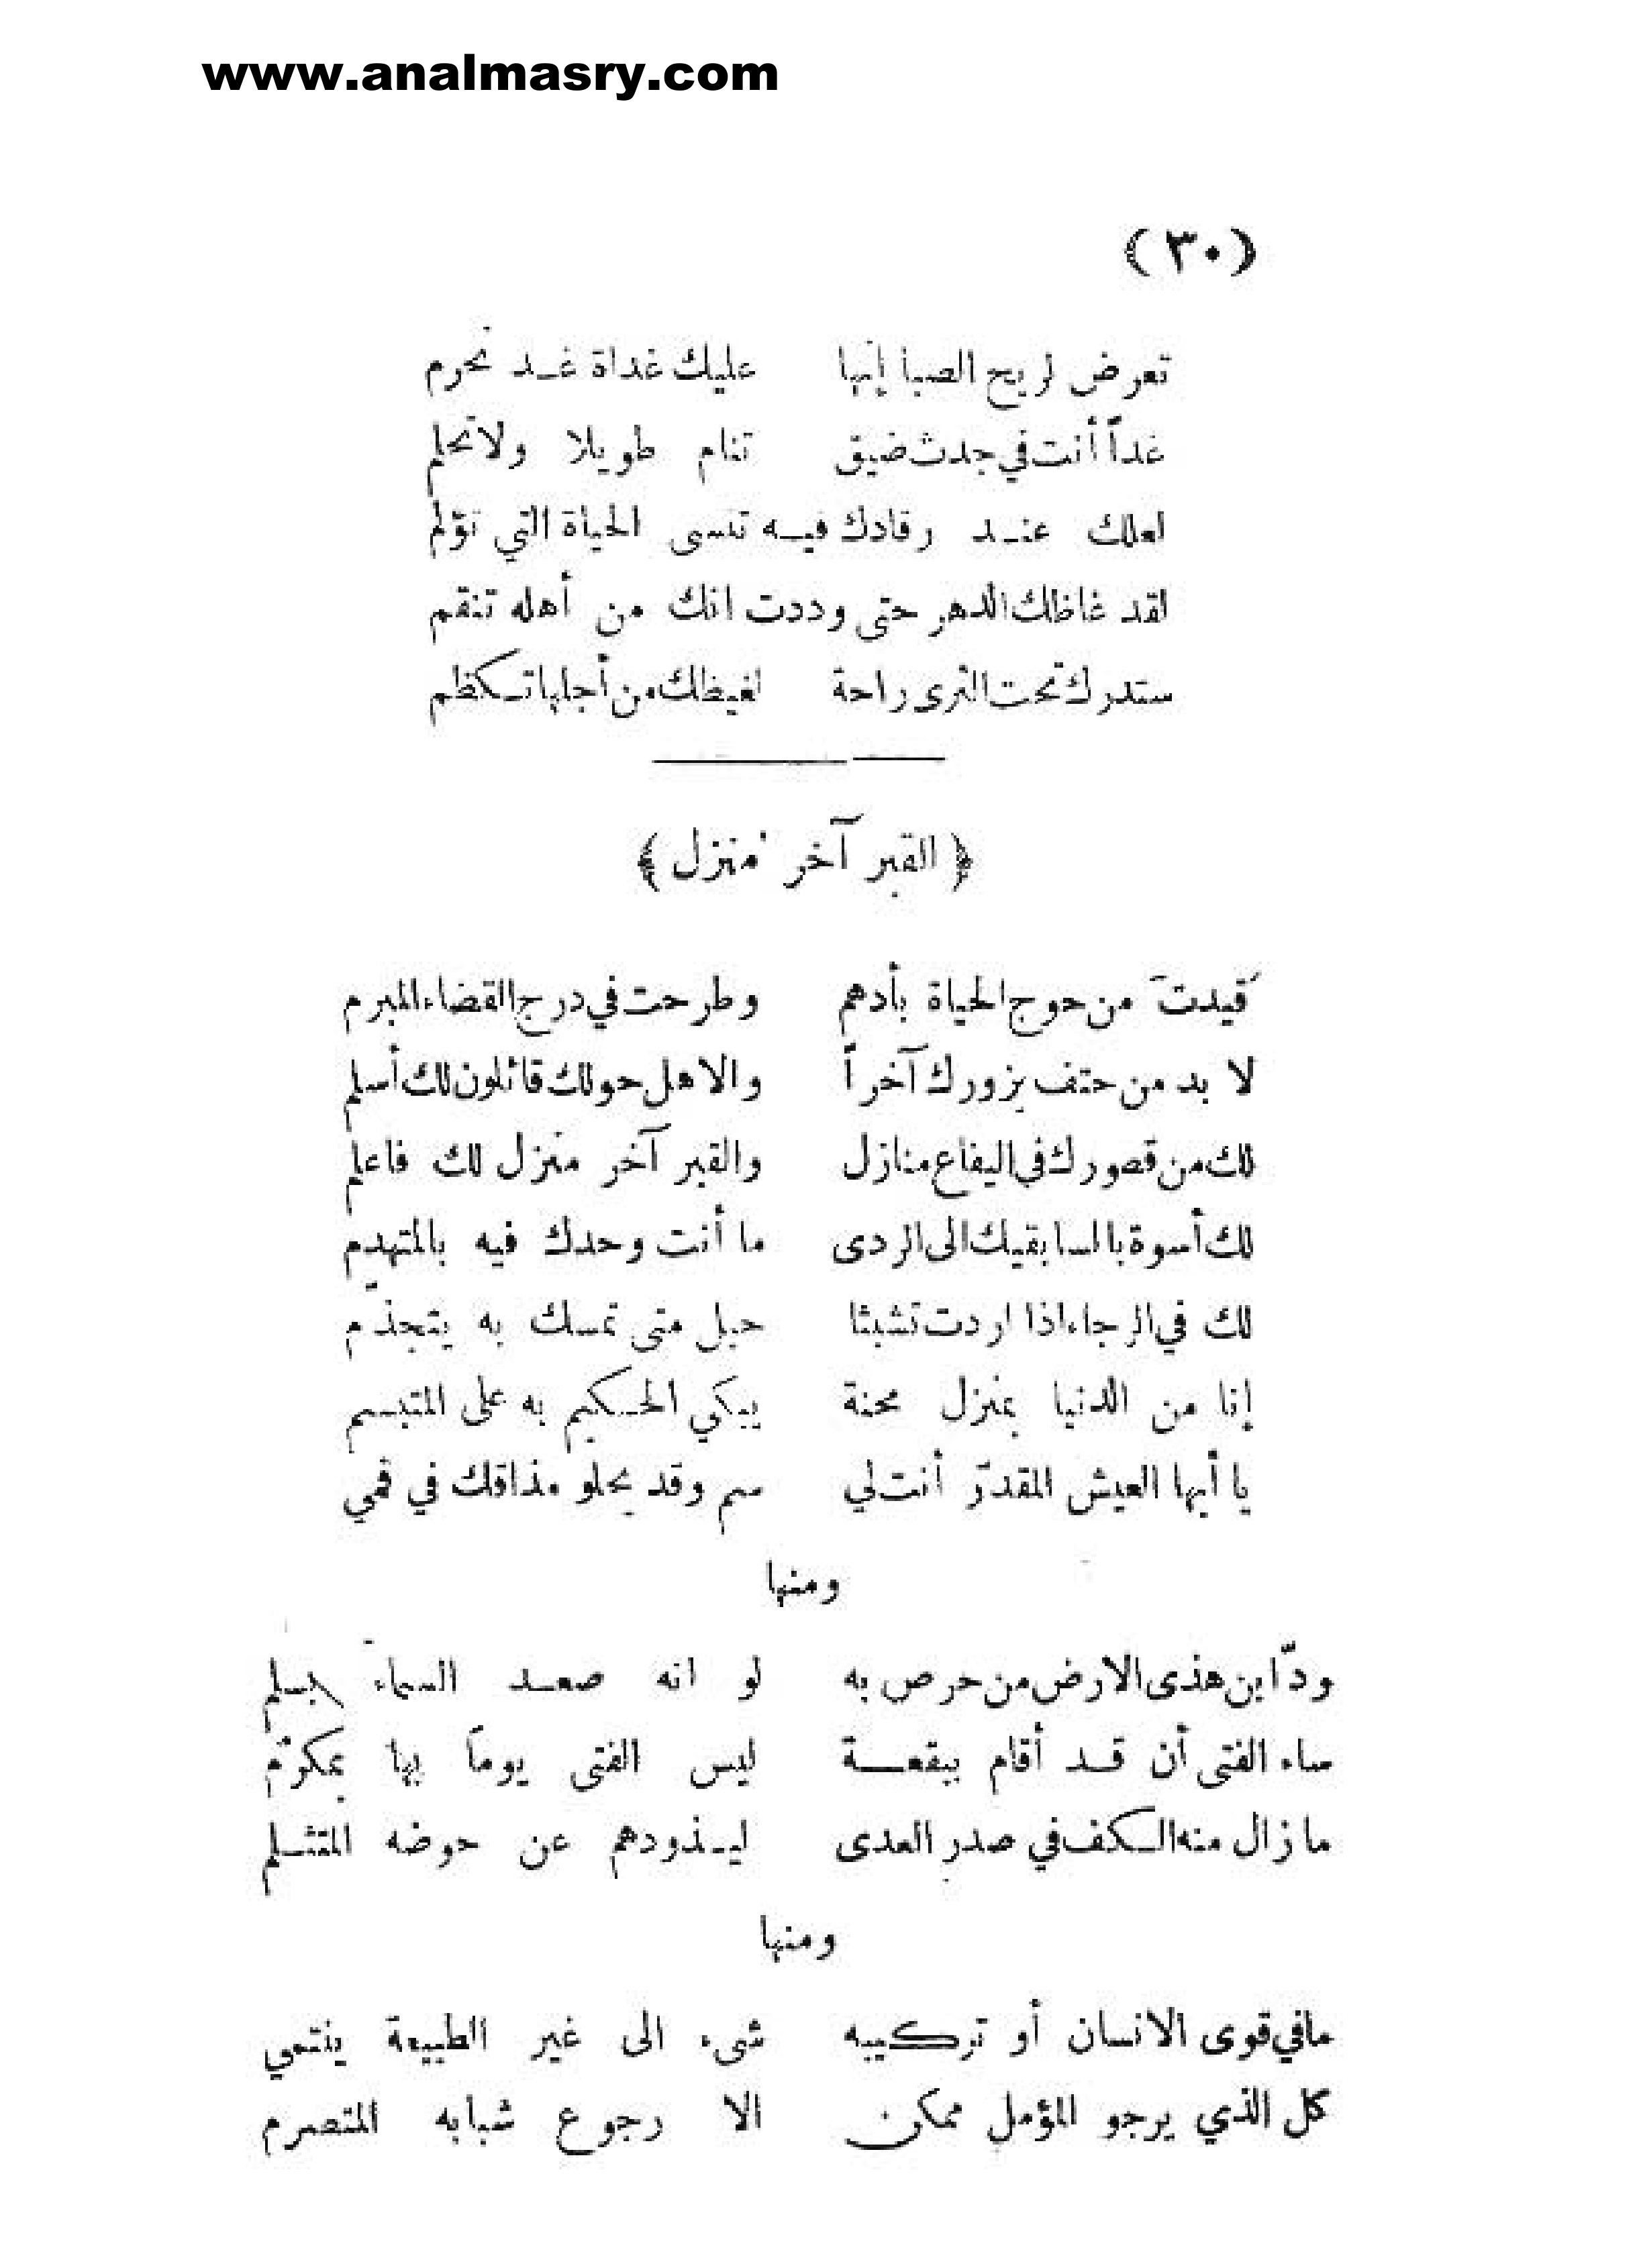 www.analmasry.com
(٣٠)
تعرض لريح الصبا إنها عليك غداة غد تحرم
غداً أنت في جدث ضيق تنام طويلا ولا تحلم
لعلك عند رقادك فيه تنسى الحياة التي تؤلم
لقد غاظك الدهر حتى وددت انك من أهله تنقم
ستدرك تحت الثرى راحة لغيظك من أجلها تكظم
﴿ القبر آخر منزل ﴾
قيدتَ من حوج الحياة بأدهم وطرحت في درج القضاء المبرم
لا بد من حتف يزورك آخراً والاهل حولك قائلون لك أسلم
لك من قصورك في اليفاع منازل والقبر آخر منزل لك فاعلم
لك أسوة بالسابقيك الى الردى ما أنت وحدك فيه بالمتهدّم
لك في الرجاء اذا اردت تشبثا حبل متى تمسك به يتجذّم
إنا من الدنيا بمنزل محنة يبكي الحكيم به على المتبسم
يا أيها العيش المقدّر أنت لي سم وقد يحلو مذاقك في فمي
ومنها
ودّ ابن هذى الارض من حرص به لو انه صعد السماءَ بسلم
ساء الفتى أن قد أقام ببقعة ليس الفتى يوماً بها بمكرّم
ما زال منه الكف في صدر العدى ليذودهم عن حوضه المتثلم
ومنها
ما في قوى الانسان أو تركيبه شيء الى غير الطبيعة ينتمي
كل الذي يرجو المؤمل ممكن الا رجوع شبابه المتصرم